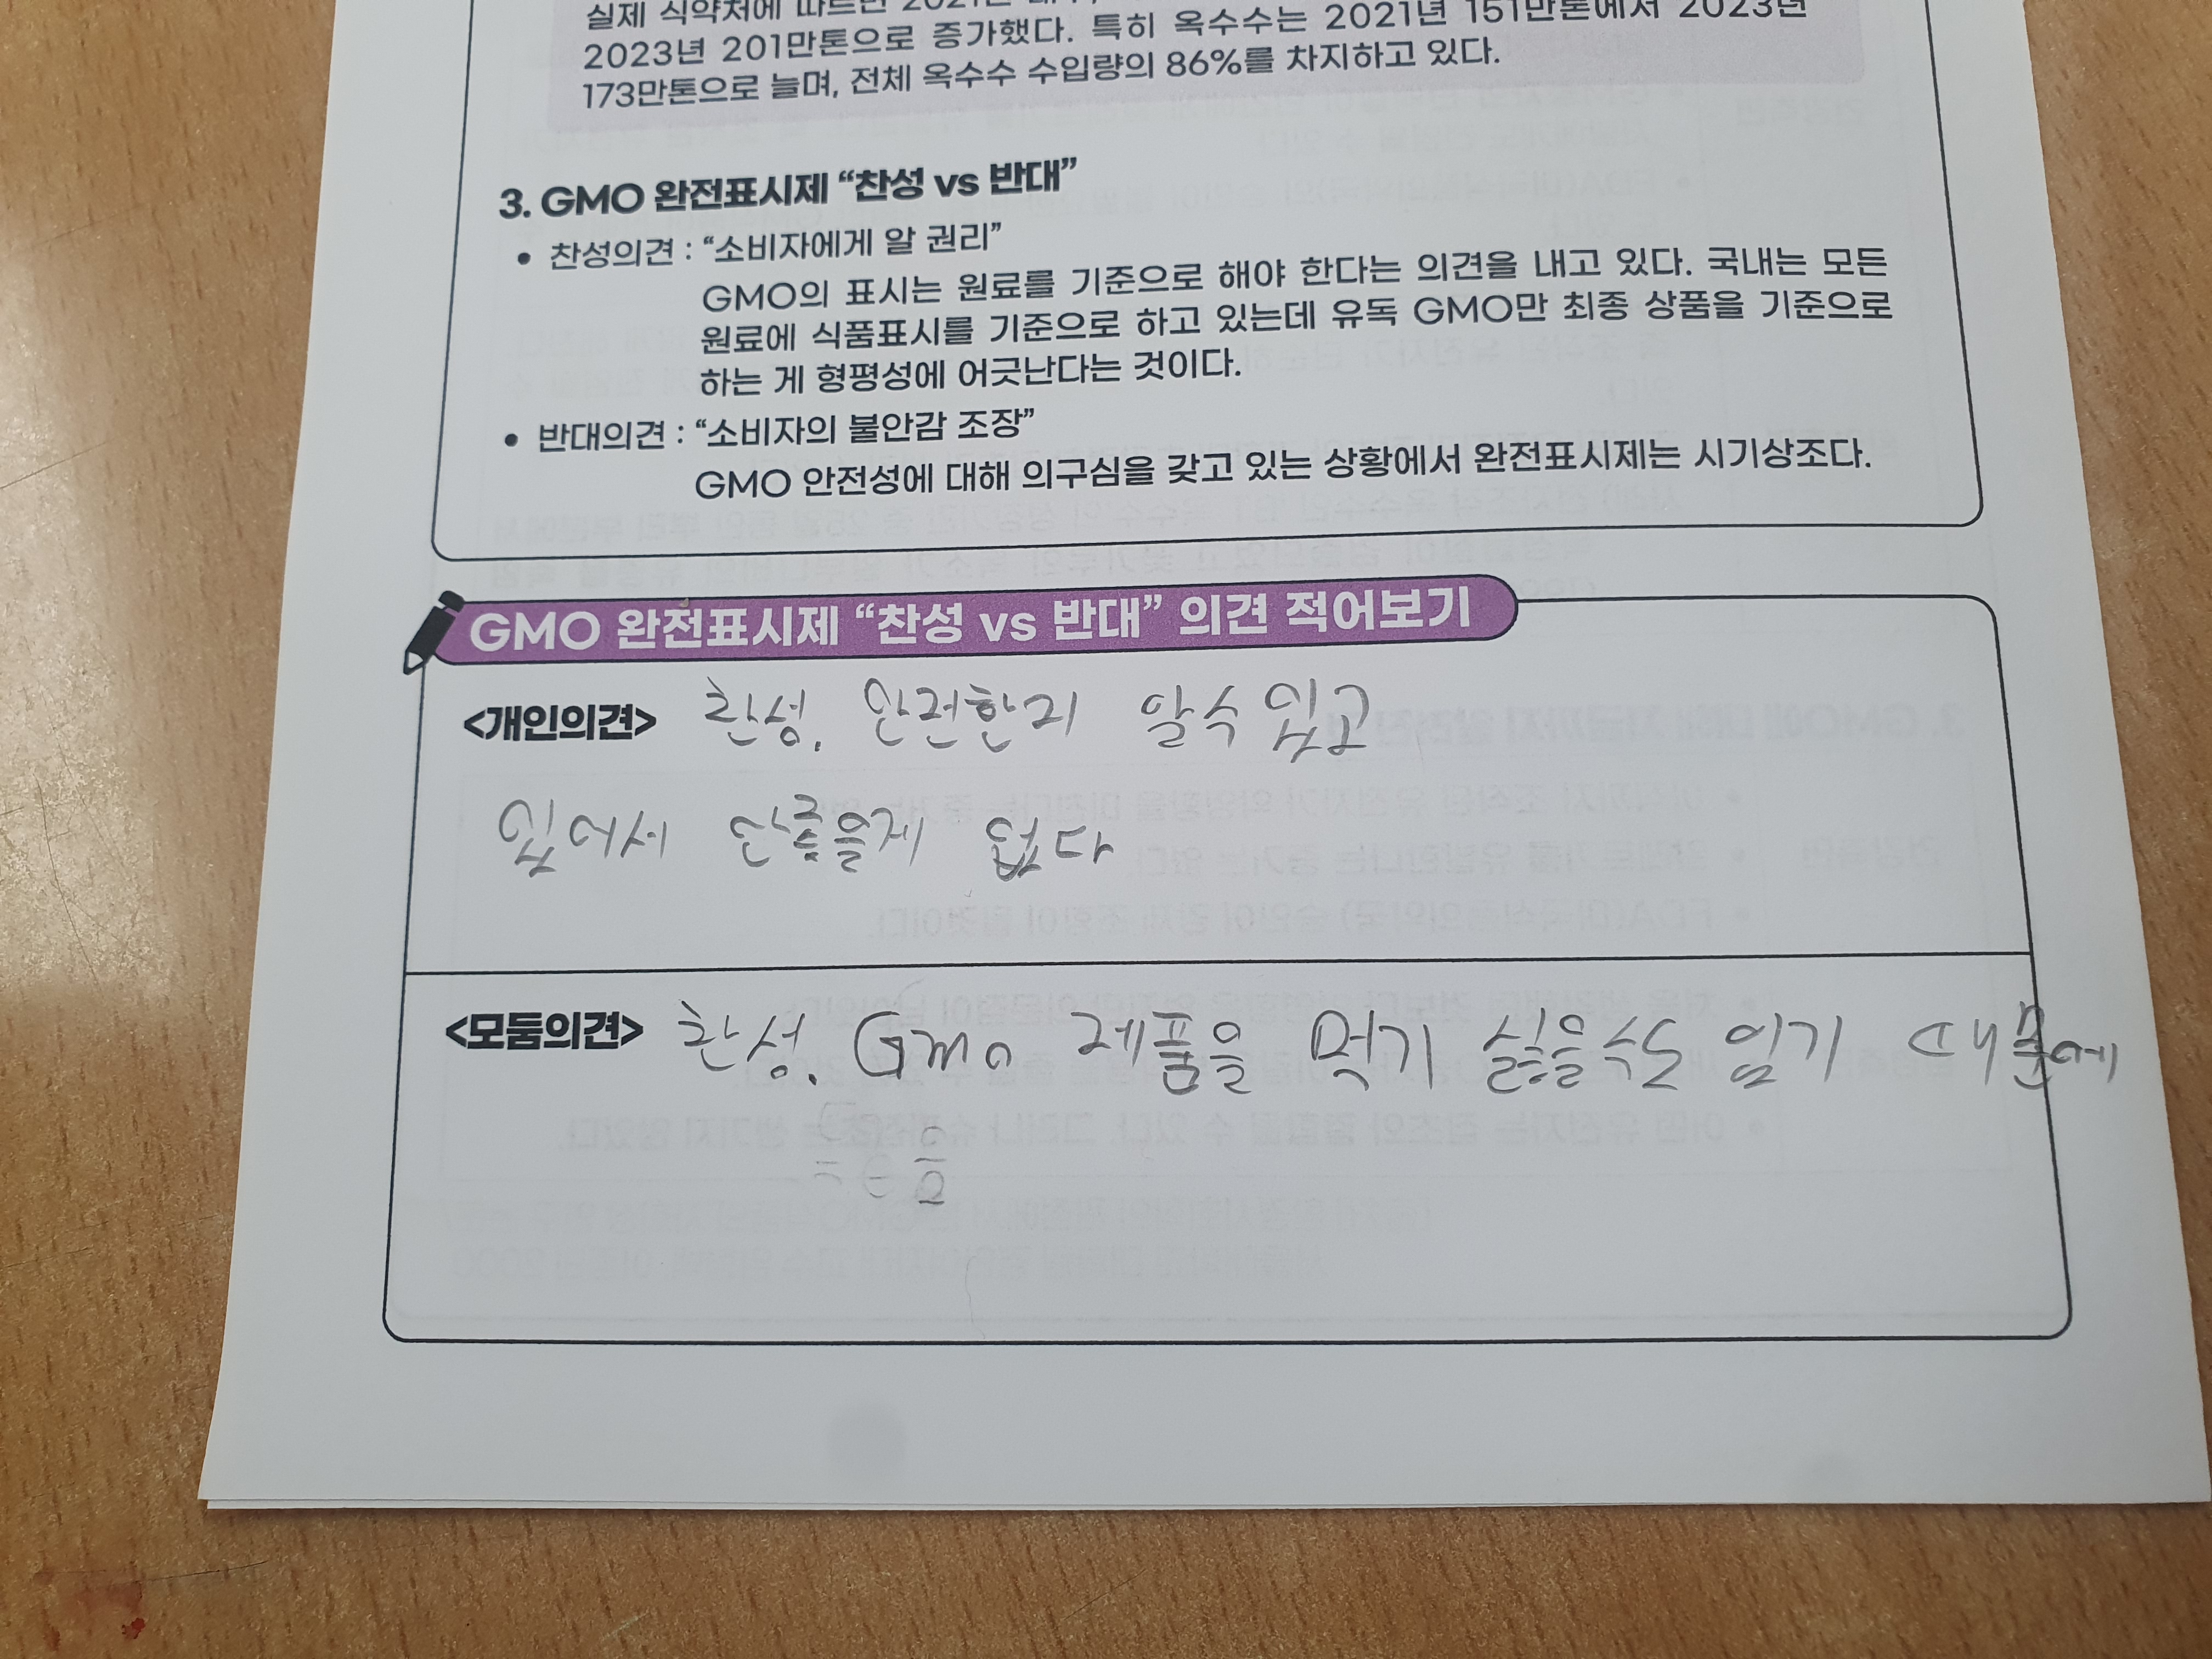 실제 식약처에 따르면 2021년
2023년 201만톤으로 증가했다. 특히 옥수수는 2021년 151만톤에서 2023년
173만톤으로 늘며, 전체 옥수수 수입량의 86%를 차지하고 있다.
3. GMO 완전표시제 “찬성 vs 반대”
• 찬성의견 : “소비자에게 알 권리”
GMO의 표시는 원료를 기준으로 해야 한다는 의견을 내고 있다. 국내는 모든
원료에 식품표시를 기준으로 하고 있는데 유독 GMO만 최종 상품을 기준으로
하는 게 형평성에 어긋난다는 것이다.
• 반대의견 : “소비자의 불안감 조장”
GMO 안전성에 대해 의구심을 갖고 있는 상황에서 완전표시제는 시기상조다.
GMO 완전표시제 “찬성 vs 반대” 의견 적어보기
<개인의견> 찬성. 안전한지 알수 있고
있어서 안좋을게 없다
<모둠의견> 찬성. GMO 제품을 먹기 싫을수도 있기 때문에